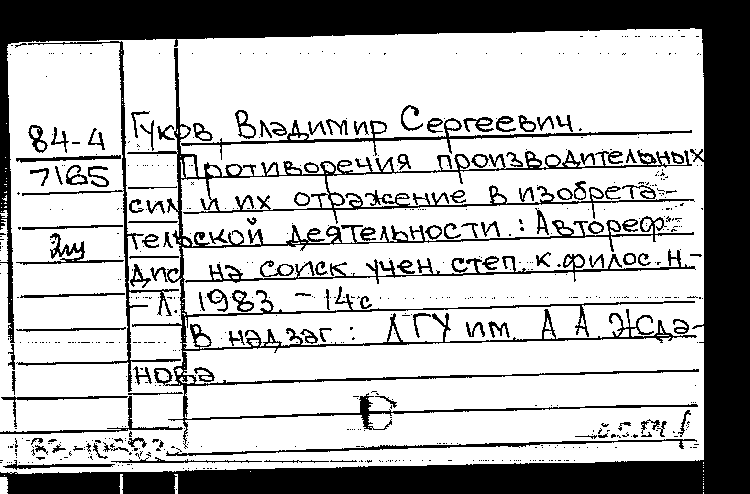 84-4
7185
2щ
Гуков, Владимир Сергеевич.
Противоречия производительных
сил и их отражение в изобрета-
тельской деятельности.: Автореф.
дис на соиск. учен. степ. к.филос.н.-
- Л. 1983. - 14 с
В надзаг: ЛГУ им. А А Жда-
нова.
D